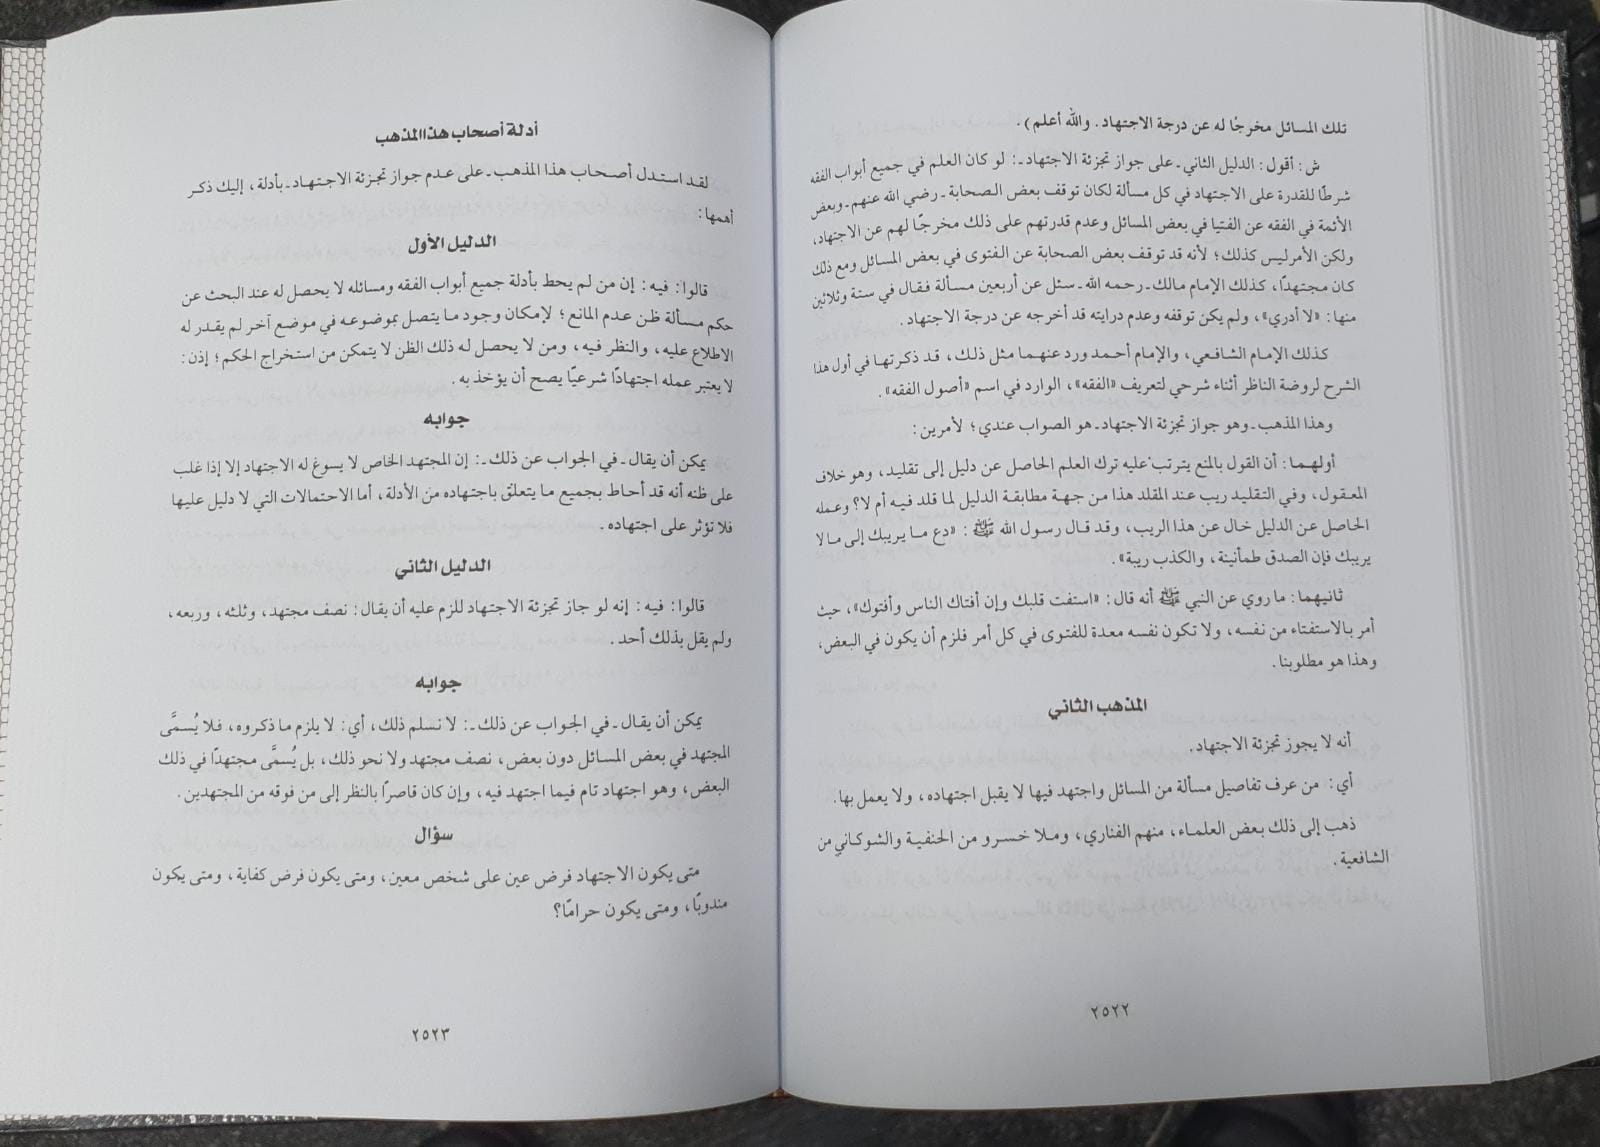 تلك المسائل مخرجًا له عن درجة الاجتهاد. والله أعلم).
ش: أقول: الدليل الثاني ـ على جواز تجزئة الاجتهاد ـ: لو كان العلم في جميع أبواب الفقه
شرطًا للقدرة على الاجتهاد في كل مسألة لكان توقف بعض الصحابة ـ رضي الله عنهم ـ وبعض
الأئمة في الفقه عن الفتيا في بعض المسائل وعدم قدرتهم على ذلك مخرجًا لهم عن الاجتهاد،
ولكن الأمر ليس كذلك؛ لأنه قد توقف بعض الصحابة عن الفتوى في بعض المسائل ومع ذلك
كان مجتهدًا، كذلك الإمام مالك ـ رحمه الله ـ سئل عن أربعين مسألة فقال في ستة وثلاثين
منها: «لا أدري»، ولم يكن توقفه وعدم درايته قد أخرجه عن درجة الاجتهاد.
كذلك الإمام الشافعي، والإمام أحمد ورد عنهما مثل ذلك، قد ذكرتها في أول هذا
الشرح لروضة الناظر أثناء شرحي لتعريف «الفقه»، الوارد في اسم «أصول الفقه».
وهذا المذهب ـ وهو جواز تجزئة الاجتهاد ـ هو الصواب عندي؛ لأمرين:
أولهما: أن القول بالمنع يترتب عليه ترك العلم الحاصل عن دليل إلى تقليد، وهو خلاف
المعقول، وفي التقليد ريب عند المقلد هذا من جهة مطابقة الدليل لما قلد فيه أم لا؟ وعمله
الحاصل عن الدليل خال عن هذا الريب، وقد قال رسول الله ﷺ: «دع ما يريبك إلى ما لا
يريبك فإن الصدق طمأنينة، والكذب ريبة».
ثانيهما: ما روي عن النبي ﷺ أنه قال: «استفت قلبك وإن أفتاك الناس وأفتوك»، حيث
أمر بالاستفتاء من نفسه، ولا تكون نفسه معدة للفتوى في كل أمر فلزم أن يكون في البعض،
وهذا هو مطلوبنا.
المذهب الثاني
أنه لا يجوز تجزئة الاجتهاد.
أي: من عرف تفاصيل مسألة من المسائل واجتهد فيها لا يقبل اجتهاده، ولا يعمل بها.
ذهب إلى ذلك بعض العلماء، منهم الفناري، وملا خسرو من الحنفية والشوكاني من
الشافعية.
٢٥٢٢
أدلة أصحاب هذا المذهب
لقد استدل أصحاب هذا المذهب ـ على عدم جواز تجزئة الاجتهاد ـ بأدلة، إليك ذكر
أهمها:
الدليل الأول
قالوا: فيه: إن من لم يحط بأدلة جميع أبواب الفقه ومسائله لا يحصل له عند البحث عن
حكم مسألة ظن عدم المانع؛ لإمكان وجود ما يتصل بموضوعه في موضع آخر لم يقدر له
الاطلاع عليه، والنظر فيه، ومن لا يحصل له ذلك الظن لا يتمكن من استخراج الحكم؛ إذن:
لا يعتبر عمله اجتهادًا شرعيًا يصح أن يؤخذ به.
جوابه
يمكن أن يقال ـ في الجواب عن ذلك ـ: إن المجتهد الخاص لا يسوغ له الاجتهاد إلا إذا غلب
على ظنه أنه قد أحاط بجميع ما يتعلق باجتهاده من الأدلة، أما الاحتمالات التي لا دليل عليها
فلا تؤثر على اجتهاده.
الدليل الثاني
قالوا: فيه: إنه لو جاز تجزئة الاجتهاد للزم عليه أن يقال: نصف مجتهد، وثلثه، وربعه،
ولم يقل بذلك أحد.
جوابه
يمكن أن يقال ـ في الجواب عن ذلك ـ: لا نسلم ذلك، أي: لا يلزم ما ذكروه، فلا يُسمَّى
المجتهد في بعض المسائل دون بعض، نصف مجتهد ولا نحو ذلك، بل يُسمَّى مجتهدًا في ذلك
البعض، وهو اجتهاد تام فيما اجتهد فيه، وإن كان قاصرًا بالنظر إلى من فوقه من المجتهدين.
سؤال
متى يكون الاجتهاد فرض عين على شخص معين، ومتى يكون فرض كفاية، ومتى يكون
مندوبًا، ومتى يكون حرامًا؟
٢٥٢٣